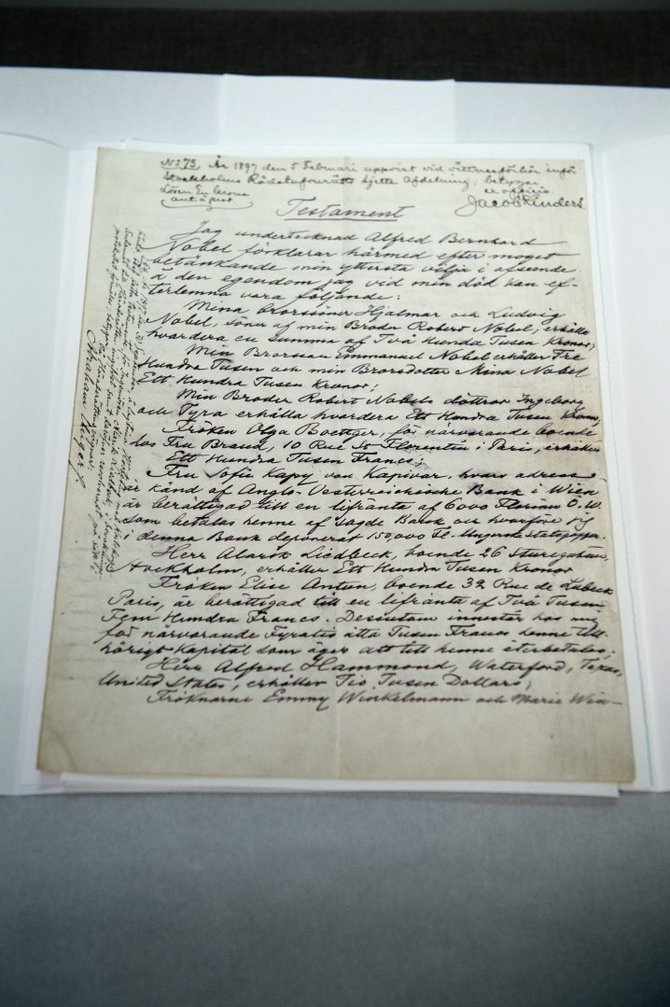 No 73. År 1897 den 5 Februari uppvist vid vittnesförhör inför
Stockholms Rådstufvurätts sjette Afdelning, betygar
ex officio
Testament
Jag undertecknad Alfred Bernhard
Nobel förklarar härmed efter moget
betänkande min yttersta vilja i afseende
å den egendom jag vid min död kan ef-
terlemna vara följande:
Mina brorssöner Hjalmar och Ludvig
Nobel, söner af min Broder Robert Nobel, erhålla
hvardera en summa af Två Hundra Tusen Kronor;
Min Brorsson Emmanuel Nobel erhåller Tre
Hundra Tusen och min Brorsdotter Mina Nobel
Ett Hundra Tusen Kronor;
Min Broder Robert Nobels döttrar Ingeborg
och Tyra erhålla hvardera Ett Hundra Tusen Kronor;
Fröken Olga Boettger, för närvarande boende
hos Fru Brand, 10 Rue St Florentin i Paris, erhåller
Ett Hundra Tusen Francs;
Fru Sofie Kapy von Kapivar, hvars adress
är känd af Anglo-Oesterreichische Bank i Wien
är berättigad till en lifränta af 6000 Florins Ö.W.
som betalas henne af sagde Bank och hvarför jag
i denna Bank deponerat 150,000 Fl. i Ungerska Statspapper.
Herr Alarik Liedbeck, boende 26 Sturegatan,
Stockholm, erhåller Ett Hundra Tusen Kronor
Fröken Elise Antun, boende 32 Rue de Lubeck
Paris, är berättigad till en lifränta af Två Tusen
Fem Hundra Francs. Desutom innestår hos mig
för närvarande Fyratio åtta Tusen Francs henne till-
hörigt Kapital som äger att till henne återbetalas;
Herr Alfred Hammond, Waterford, Texas,
United States, erhåller Tio Tusen Dollars;
Fröknarne Emmy Winkelmann och Marie Win-